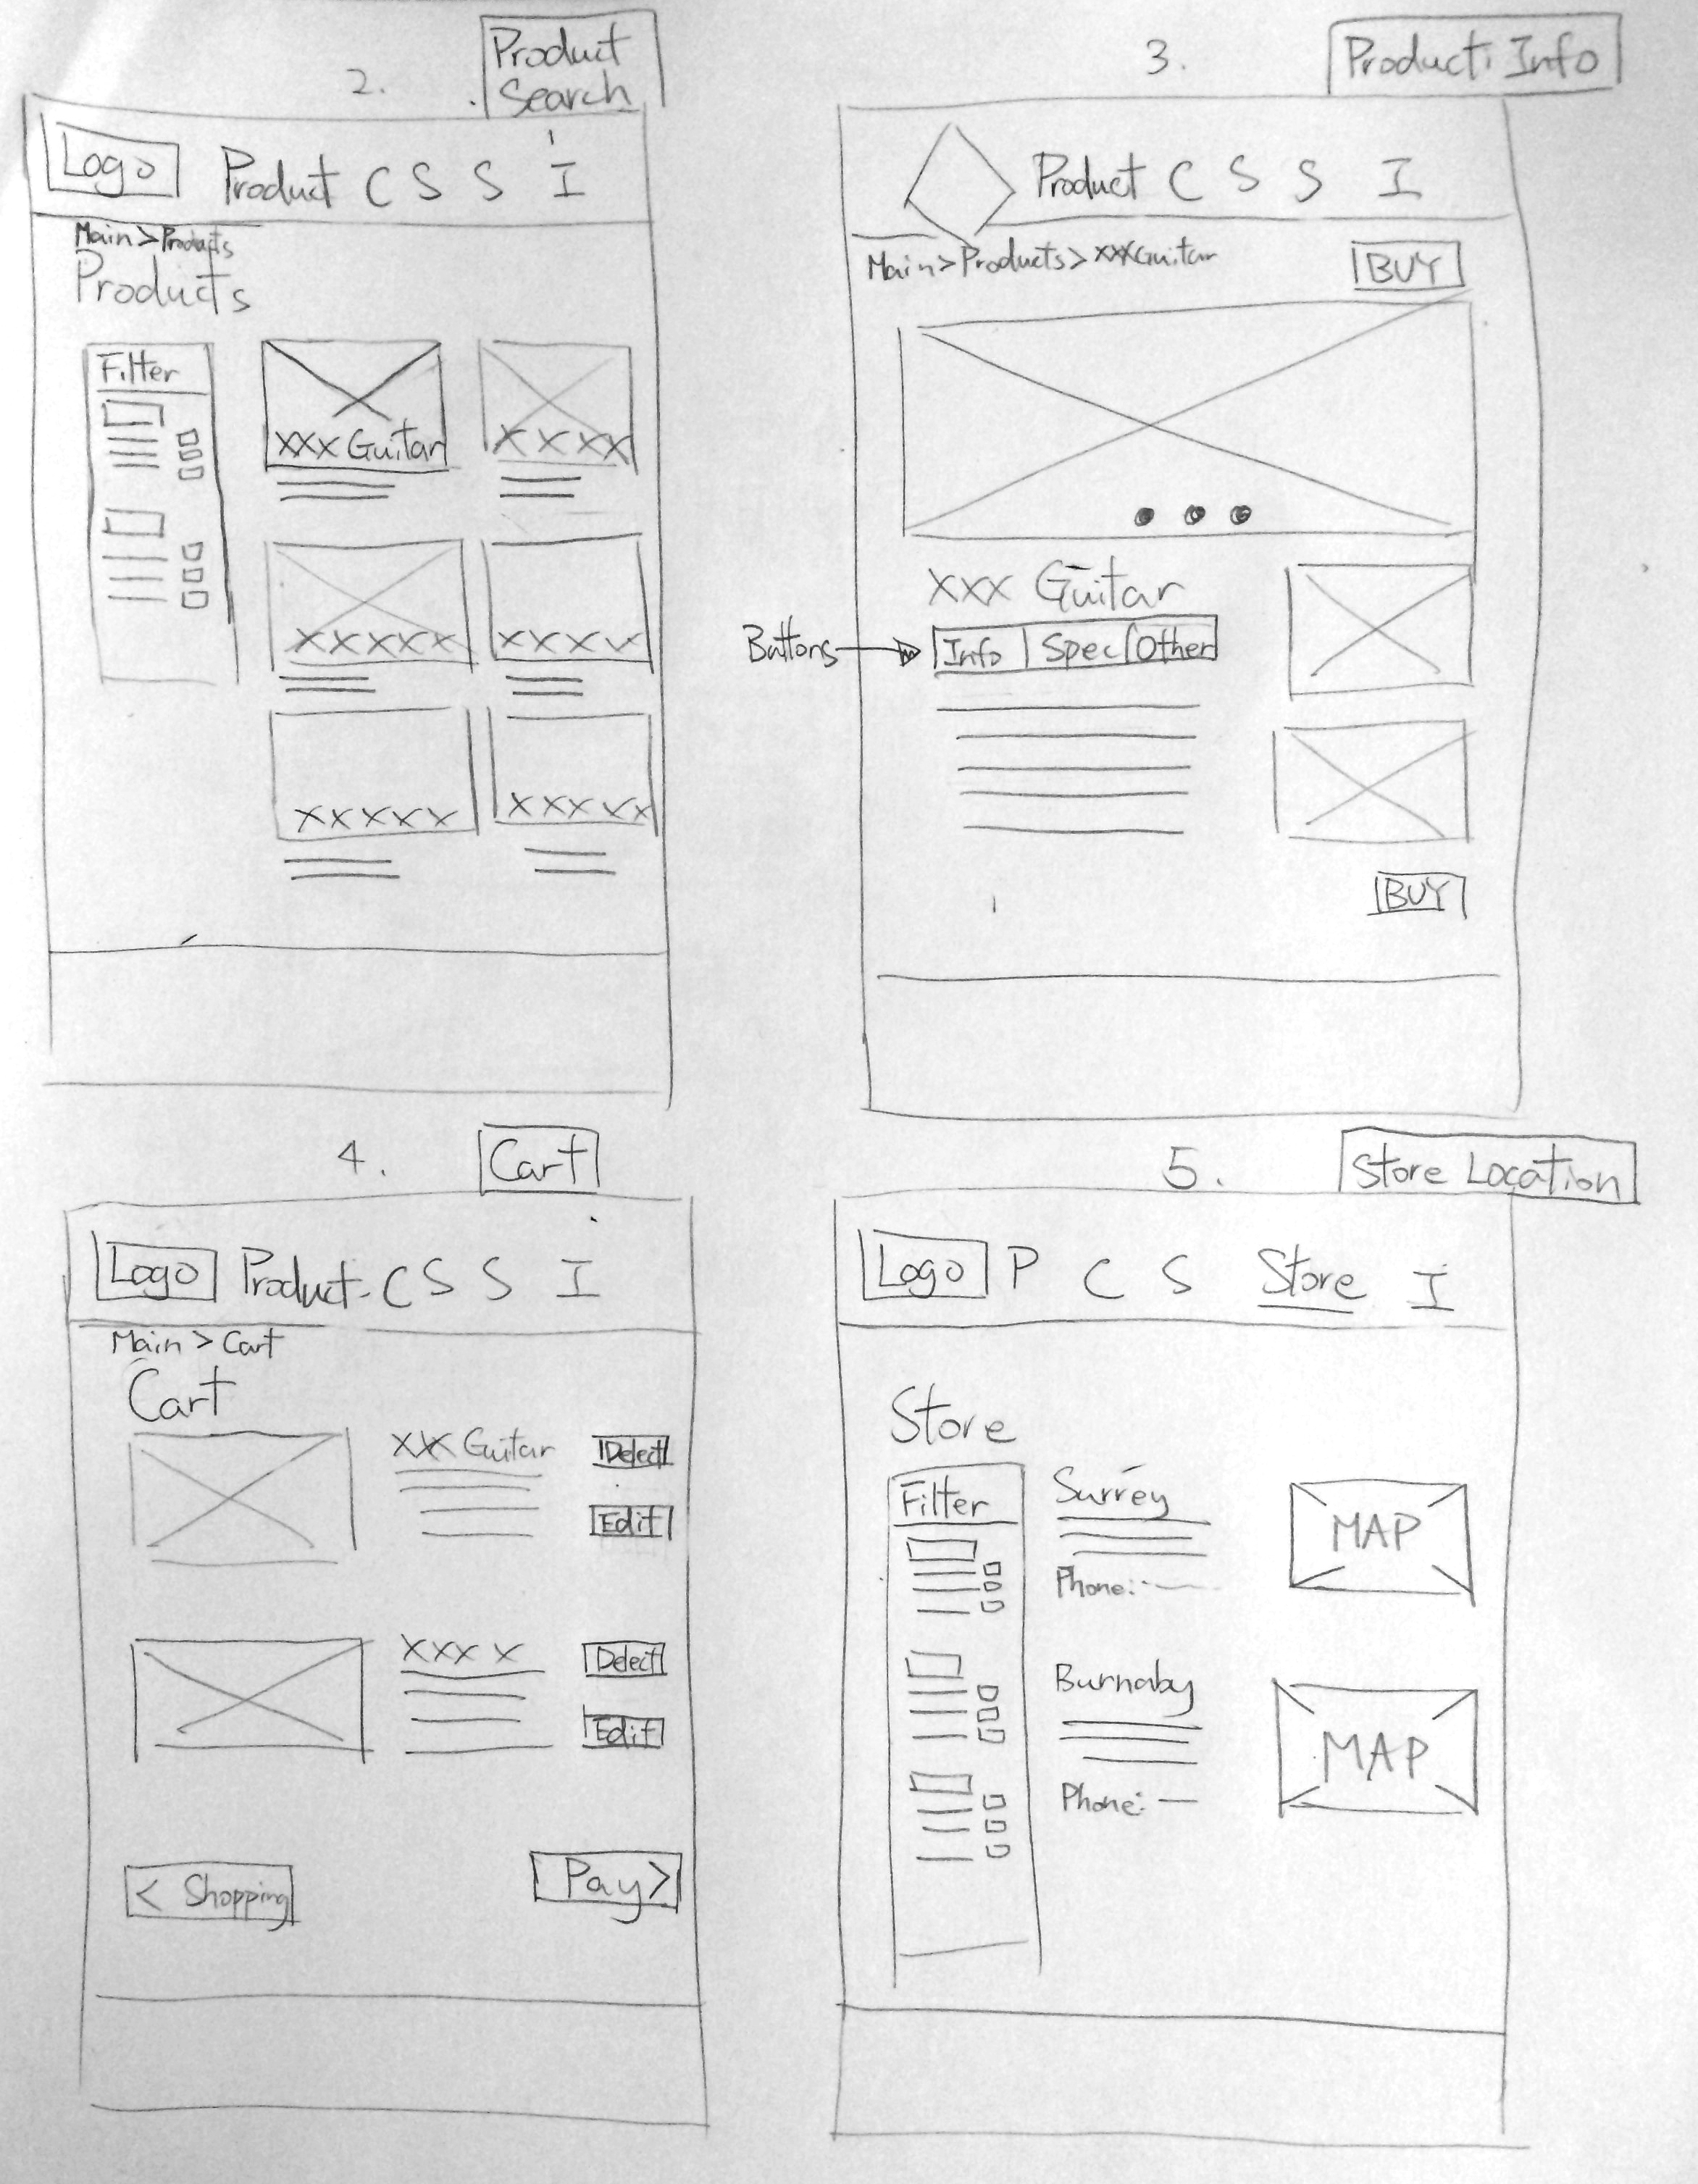 2.
Product
Search
Logo Product C S S I
Main > Products
Products
Filter
XXX Guitar
XXXX
XXXXX
XXXX
XXXXX
XXXXX
3.
Product Info
Product C S S I
Main > Products > XXXGuitar
BUY
XXX Guitar
Buttons
Info Spec Other
BUY
4.
Cart
Logo Product C S S I
Main > Cart
Cart
XXX Guitar
Delect
Edit
XXXX
Delect
Edit
< Shopping
Pay >
5.
Store Location
Logo P C S Store I
Store
Filter
Surrey
Phone:
MAP
Burnaby
Phone:
MAP